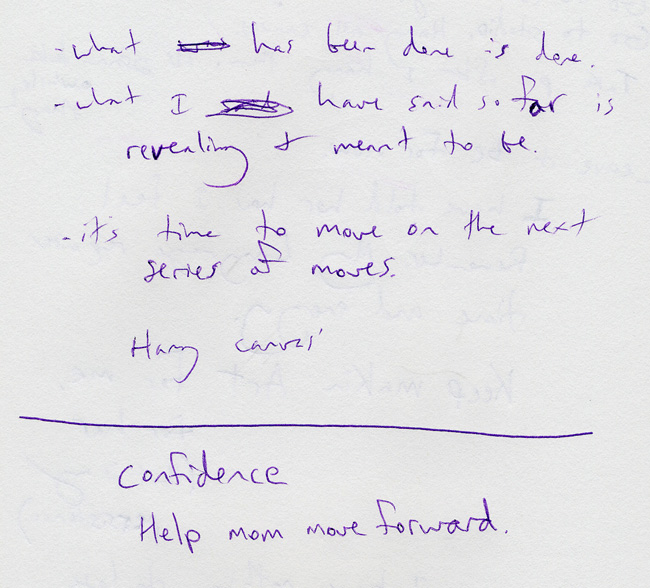 - what has been done is done.
- what I have said so far is
revealing & meant to be.
- it's time to move on the next
series of moves.
canvas'
Confidence
Help mom move forward.